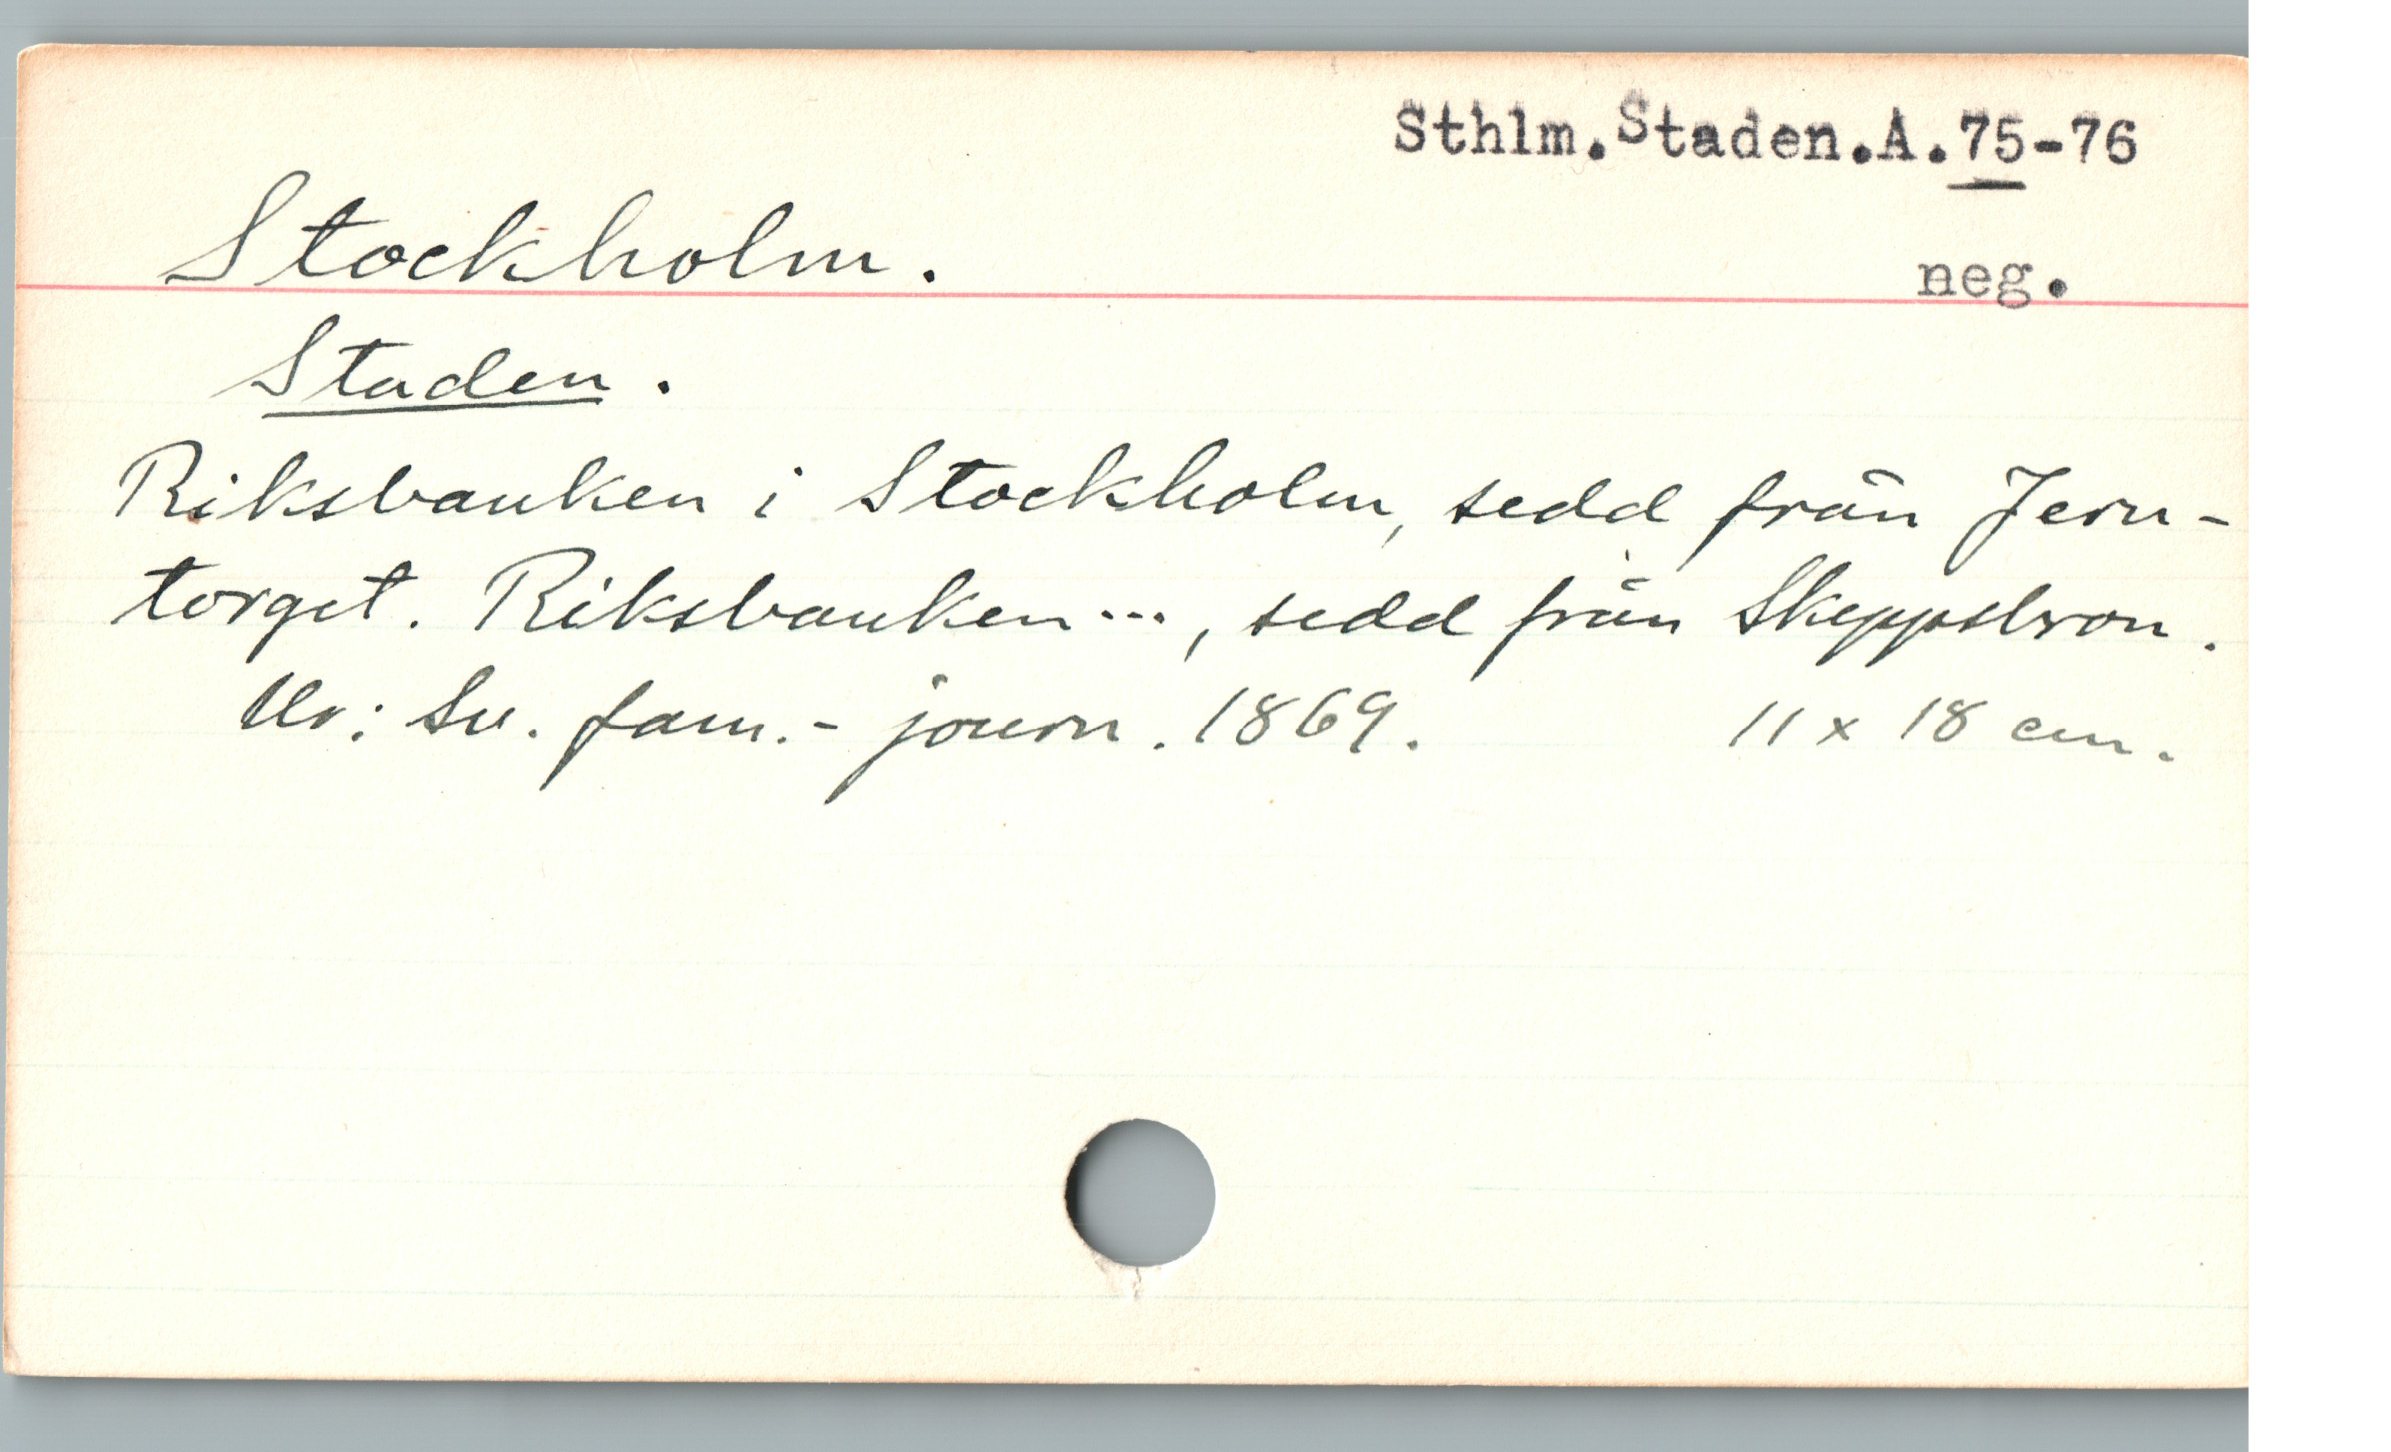 Sthlm.Staden.A.75-76
Stockholm.
neg.
Staden.
Riksbanken i Stockholm, sedd från Jern-
torget. Riksbanken..., sedd från Skeppsbron.
Ur: Sv. fam.-journ. 1869. 11 x 18 cm.